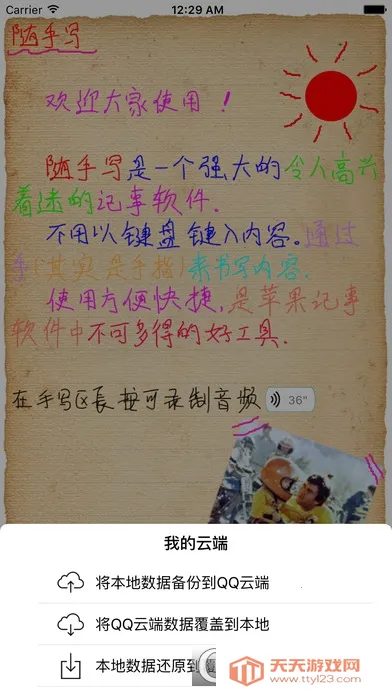 Carrier
12:29 AM
随手写
欢迎大家使用！
随手写是一个强大的令人高兴
着迷的记事软件.
不用以键盘键入内容。通过
手(其实是手指)来书写内容.
使用方便快捷,是苹果记事
软件中不可多得的好工具.
在手写区长按可录制音频 36"
我的云端
将本地数据备份到QQ云端
将QQ云端数据覆盖到本地
本地数据还原到
天天游戏网
www.ttyl23.com